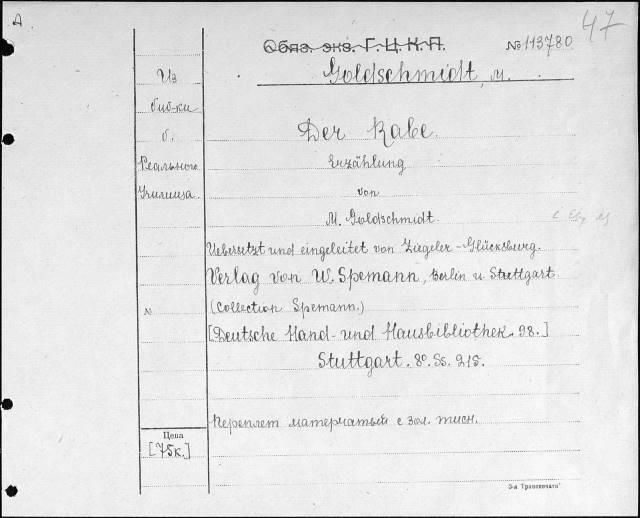 А
47
Обяз. экз. Г. Ц. К. П. № 113780
Goldschmidt, M.
Из
биб-ки
б.
Реального
Училища.
Der Rabe.
Erzählung
von
M. Goldschmidt.
Uebersetzt und eingeleitet von Ziegeler-Glücksburg.
Verlag von W. Spemann, Berlin u. Stuttgart.
№ (Collection Spemann.)
[Deutsche Hand- und Hausbibliothek. 98.]
Stuttgart. 8°. Ss. 215.
Переплет матерчатый с зол. тисн.
Цена
[75 к.]